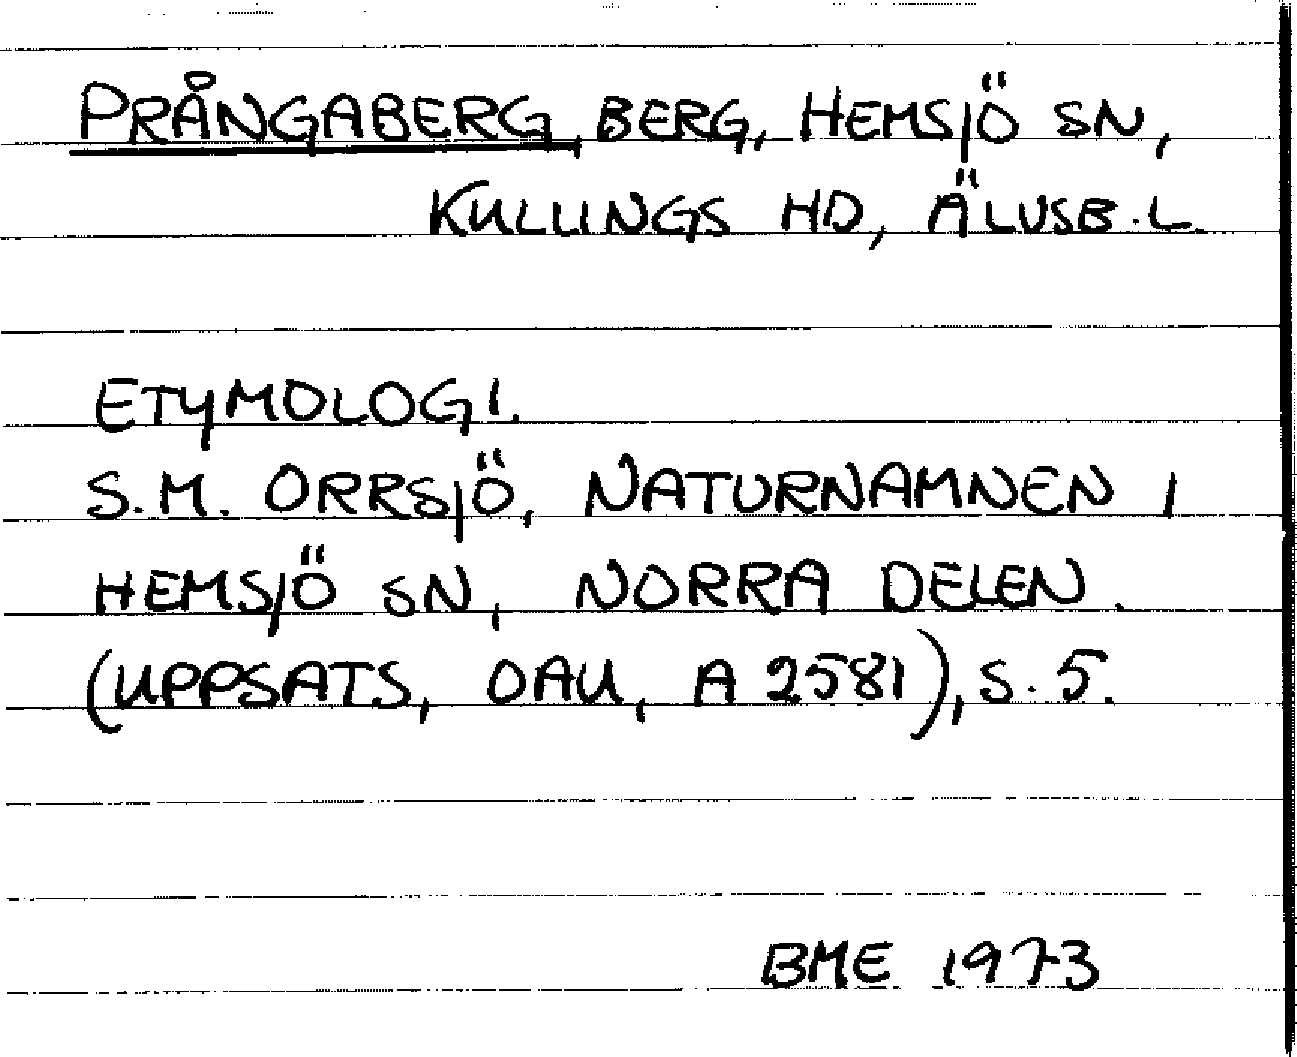 PRÅNGABERG, BERG, HEMSJÖ SN,
KULLINGS HD, ÄLVSB. L.
ETYMOLOGI.
S.M. ORRSJÖ, NATURNAMNEN I
HEMSJÖ SN, NORRA DELEN.
(UPPSATS, OAU, A 2581), S. 5.
BME 1973